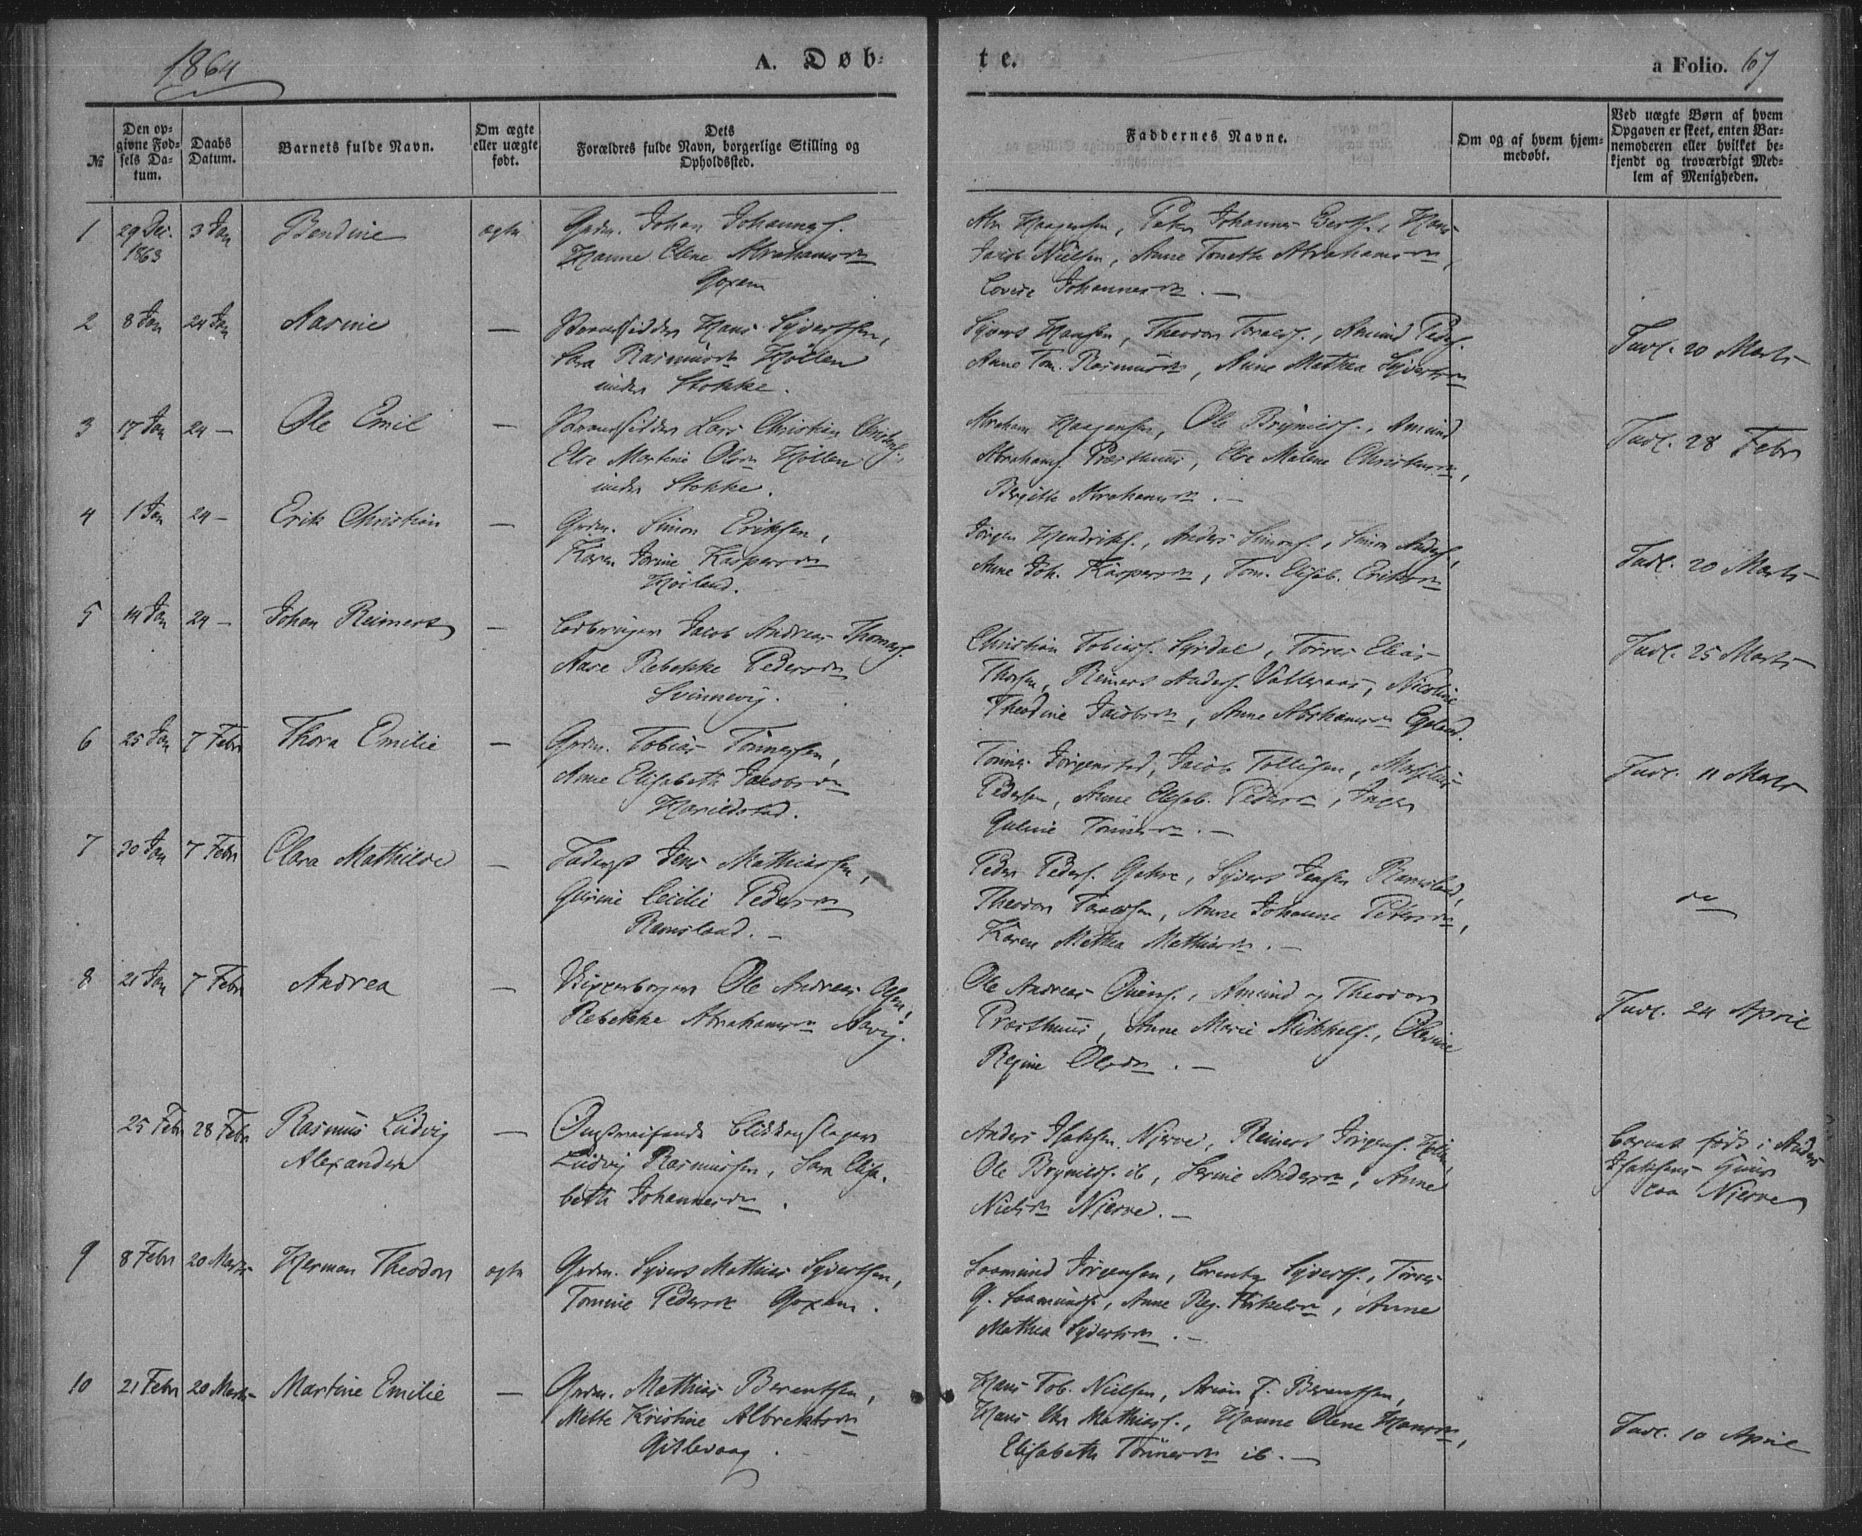 1864
A. Døb-
te.
a Folio. 67
№
Den op-
givne Fød-
sels Da-
tum.
Daabs
Datum.
Barnets fulde Navn.
Om ægte
eller uægte
født.
Dets
Forældres fulde Navn, borgerlige Stilling og
Opholdssted.
Faddernes Navne.
Om og af hvem hjem-
medøbt.
Ved uægte Børn af hvem
Opgaven er skeet, enten Bar-
nemoderen eller hvilket be-
kjendt og troværdigt Med-
lem af Menigheden.
1
29 Dec.
1863
3 Jan
Bendine
ægte
Grdm. Johan Johannes.
Hanne Elene Abrahamsdn
Goxem
Abr Haagensen, Peter Johannes, Hans
Jacob Nielsen, Anne Tonette Abrahamsdn,
Lovise Johannesdn. —
2
8 Jan
24 Jan
Aasine
—
Hans Syvertsen,
Sara Rasmusdn Høllen
under Stokke.
Syvert Hansen, Theodor, Amund Peders.
Anne Tom. Rasmusdn, Anne Mathea Syvertsdn
Indl. 20 Marts
3
17 Jan
24 —
Ole Emil
—
Lars Christian
Else Martine Olsdn Høllen
under Stokke.
Abraham Haagensen, Ole Brynilds., Amund
Abrahams. Præsthuus, Else Malene Christensdn,
Birgitte Abrahamsdn. —
Indl. 28 Febr
4
1 Jan
24 —
Erik Christian
—
Grdm. Simon Eriksen,
Karen Jorine Kaspersdn
Høiland.
Jørgen Hendriks., Anders Simons., Simon Anders.,
Anne Joh. Kaspersdn, Tom. Elisab. Eriksdn
Indl. 20 Marts
5
14 Jan
24 —
Johan Reimert
—
Jacob Andreas Thomas.
Aase Rebekke Pedersdn
Svinnevig.
Christian Tobias. Syrdal, Tørres Elias
Thorsen, Reinert Anders. Valleraas, Nicoline
Theodine Jacobsdn, Anne Abrahamsdn Egeland.
Indl. 25 Marts
6
25 Jan
7 Febr
Thora Emilie
—
Grdm. Tobias Tønnesen,
Anne Elisabeth Jacobsdn
Harildstad.
Tønnes Jørgenstad, Jacob Tollefsen, Mathias
Pedersen, Anne Elisab. Pedersdn, Inger
Guline Tønnesdn. —
Indl. 11 Marts
7
30 Jan
7 Febr
Clara Mathilde
—
Jens Mathiassen,
Gurine Cecilie Pedersdn
Ramsland. —
Peder Peders. Gahre, Syvert Jensen Ramsland,
Theodor, Anne Johanne Petersdn,
Karen Mathea Mathiasdn. —
do
8
21 Jan
7 Febr
Andrea
—
Ole Andreas Olsen,
Rebekke Abrahamsdn Aavig.
Ole Andreas, Amund og Theodor
Præsthuus, Anne Marie Mikkels., Olevine
Regine Olsdn. —
Indl. 24 April
25 Febr
28 Febr
Rasmus Ludvig
Alexander
—
Omstreifende Blikkenslager
Ludvig Rasmussen, Sara Elisa-
beth Johannesdn.
Anders Isaksen Njerve, Reinert Jørgens.,
Ole Brynilds. ib, Serine Andersdn, Anne
Nielsdn Njerve. —
Barnet født i Anders
Isaksens Huus
paa Njerve
9
8 Febr
20 Marts
Herman Theodor
ægte
Grdm. Syvert Mathias Syvertsen,
Tomine Pedersdn Goxem.
Saamund Jørgensen, Lorents Syverts., Tørres
G. Saamunds., Anne Reg., Anne
Mathea Syvertsdn. —
10
21 Febr
20 Marts
Martine Emilie
—
Grdm. Mathias Berentsen,
Mette Kristine Albrektsdn
Gitlevaag.
Hans Tob. Nielsen, F. Berentsen,
Hans Chr Mathias., Hanne Olene Hansdn,
Elisabeth Tønnesdn ib. —
Indl. 10 April